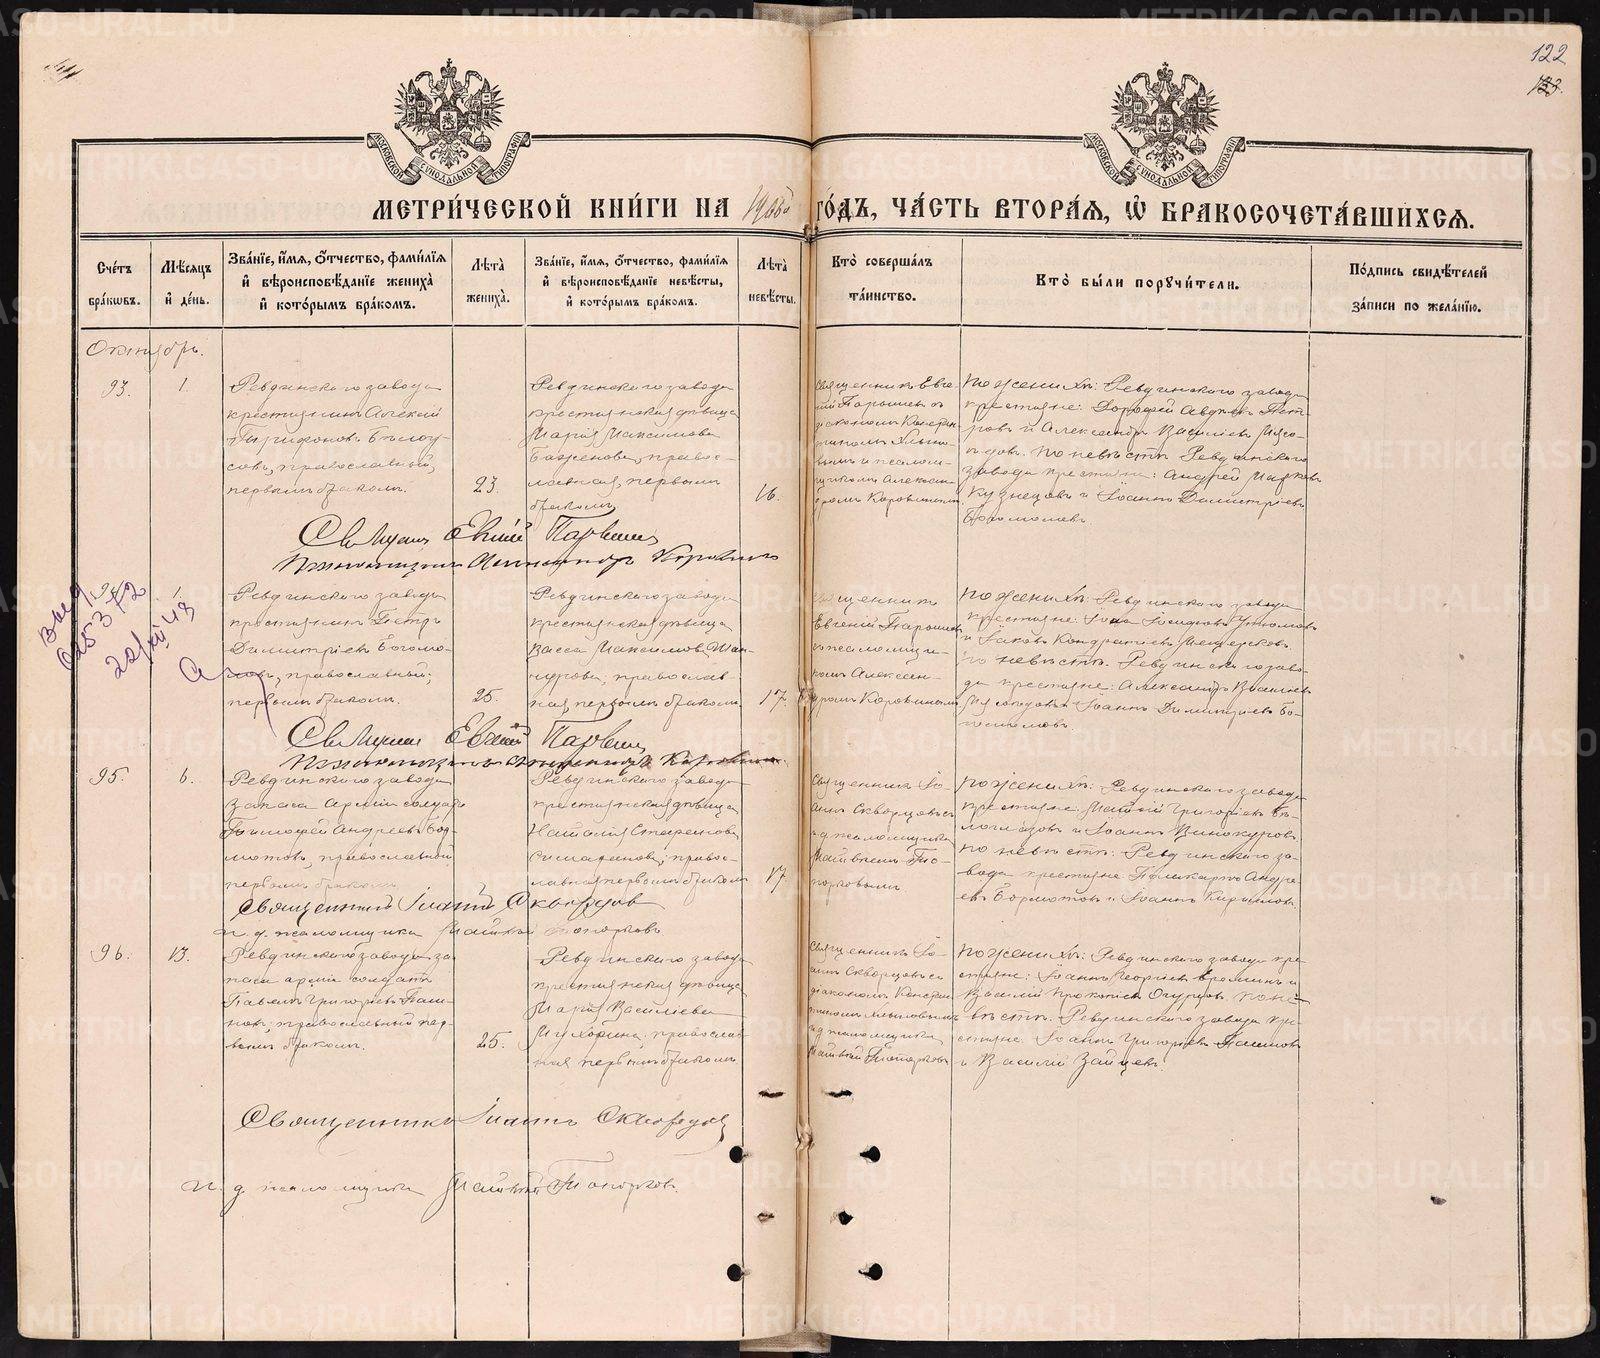 122
МЕТРИ́ЧЕСКОЙ КНИ́ГИ НА 1906 ГО́ДЪ, ЧА́СТЬ ВТОРА́Я, Ѡ҆ БРАКОСОЧЕТА́ВШИХСЯ.
МОСКОВСКОЙ СѴНОДАЛЬНОЙ ТИПОГРАФІИ
МОСКОВСКОЙ СѴНОДАЛЬНОЙ ТИПОГРАФІИ
Сче́тъ бра́кωвъ.
Мѣ́сяцъ и҆ де́нь.
Зва́нїе, и҆́мя, ѻ҆́тчество, фами́лїя и҆ вѣроисповѣ́данїе жениха̀ и҆ кото́рымъ бра́комъ.
Лѣта̀ жениха̀.
Зва́нїе, и҆́мя, ѻ҆́тчество, фами́лїя и҆ вѣроисповѣ́данїе невѣ́сты, и҆ кото́рымъ бра́комъ.
Лѣта̀ невѣ́сты.
Кто̀ соверша́лъ та́инство.
Кто̀ бы́ли порꙋчи́тели.
По́дпись свидѣ́телей за́писи по жела́нїю.
Октябрь.
93.
1.
Ревдинскаго завода
крестьянинъ Алексій
Трифоновъ Бѣлоу-
совъ, православный,
первымъ бракомъ.
23.
Ревдинскаго завода
крестьянская дѣвица
Марія Максимова
Баженова, правос-
лавная, первымъ
бракомъ
16.
Священникъ Евге-
ній Парышевъ съ
діакономъ Констан-
тиномъ
вымъ и псалом-
щикомъ Алексан-
дромъ Коровинымъ
По женихѣ: Ревдинскаго завода
крестьяне: Дорофей Авдіевъ Пет-
ровъ и Александръ Василіевъ Мясо-
ѣдовъ. По невѣстѣ Ревдинскаго
завода крестьяне: Андрей Марковъ
Кузнецовъ и Іоаннъ Димитріевъ
Богомоловъ.
Священникъ Евгеній Парышевъ
Псаломщикъ Александръ Коровинъ
94.
1.
Ревдинскаго завода
крестьянинъ Петръ
Димитріевъ Богомо-
ловъ, православный;
первымъ бракомъ.
25.
Ревдинскаго завода
крестьянская дѣвица
Васса Максимова Шан-
чурова, православ-
ная, первымъ бракомъ
17.
Священникъ
Евгеній Парышевъ
съ псаломщи-
комъ Алексан-
дромъ Коровинымъ
По женихѣ: Ревдинскаго завода
крестьяне:
и Іаковъ Кондратіевъ Мещеряковъ.
По невѣстѣ. Ревдинскаго заво-
да крестьяне: Александръ Василіевъ
Мясоѣдовъ и Іоаннъ Димитріевъ Бо-
гомоловъ.
Священникъ Евгеній Парышевъ
Псаломщикъ Александръ Коровинъ.
95.
6.
Ревдинскаго завода
запаса арміи солдатъ
Тимофей Андреевъ Бор-
мотовъ, православный
первымъ бракомъ
Ревдинскаго завода
крестьянская дѣвица
Наталія Стефанова
православная первымъ бракомъ
17
Священникъ Іо-
аннъ Скворцовъ съ
и д псаломщика
Матвѣемъ То-
порковымъ
По женихѣ: Ревдинскаго завода
крестьяне: Матѳій Григоріевъ Бѣ-
логлазовъ и Іоаннъ Винокуровъ.
По невѣстѣ: Ревдинскаго за-
вода крестьяне: Поликарпъ Андре-
евъ Бормотовъ и Іоаннъ Кирилловъ.
Священникъ Іоаннъ Скворцовъ
и. д. псаломщика Матвѣй Топорковъ
96.
13.
Ревдинскаго завода за-
паса арміи солдатъ
Павелъ Григоріевъ Паши-
новъ, православный пер-
вымъ бракомъ.
25.
Ревдинскаго завода
крестьянская дѣвица
Марія Василіева
Мухорина, православ-
ная первымъ бракомъ
Священникъ Іо-
аннъ Скворцовъ съ
діакономъ Констан-
тиномъ
и д псаломщика
Матвѣй Топорковъ
По женихѣ: Ревдинскаго завода кре-
стьяне: Іоаннъ Георгіевъ Ереминъ и
Василій Прокопіевъ Огурцовъ. По не-
вѣстѣ: Ревдинскаго завода кре-
стьяне: Іоаннъ Григоріевъ Пашиновъ
и Василій Зайцевъ.
Священникъ Іоаннъ Скворцовъ
и. д. псаломщика Матвѣй Топорковъ.
METRIKI.GASO-URAL.RU